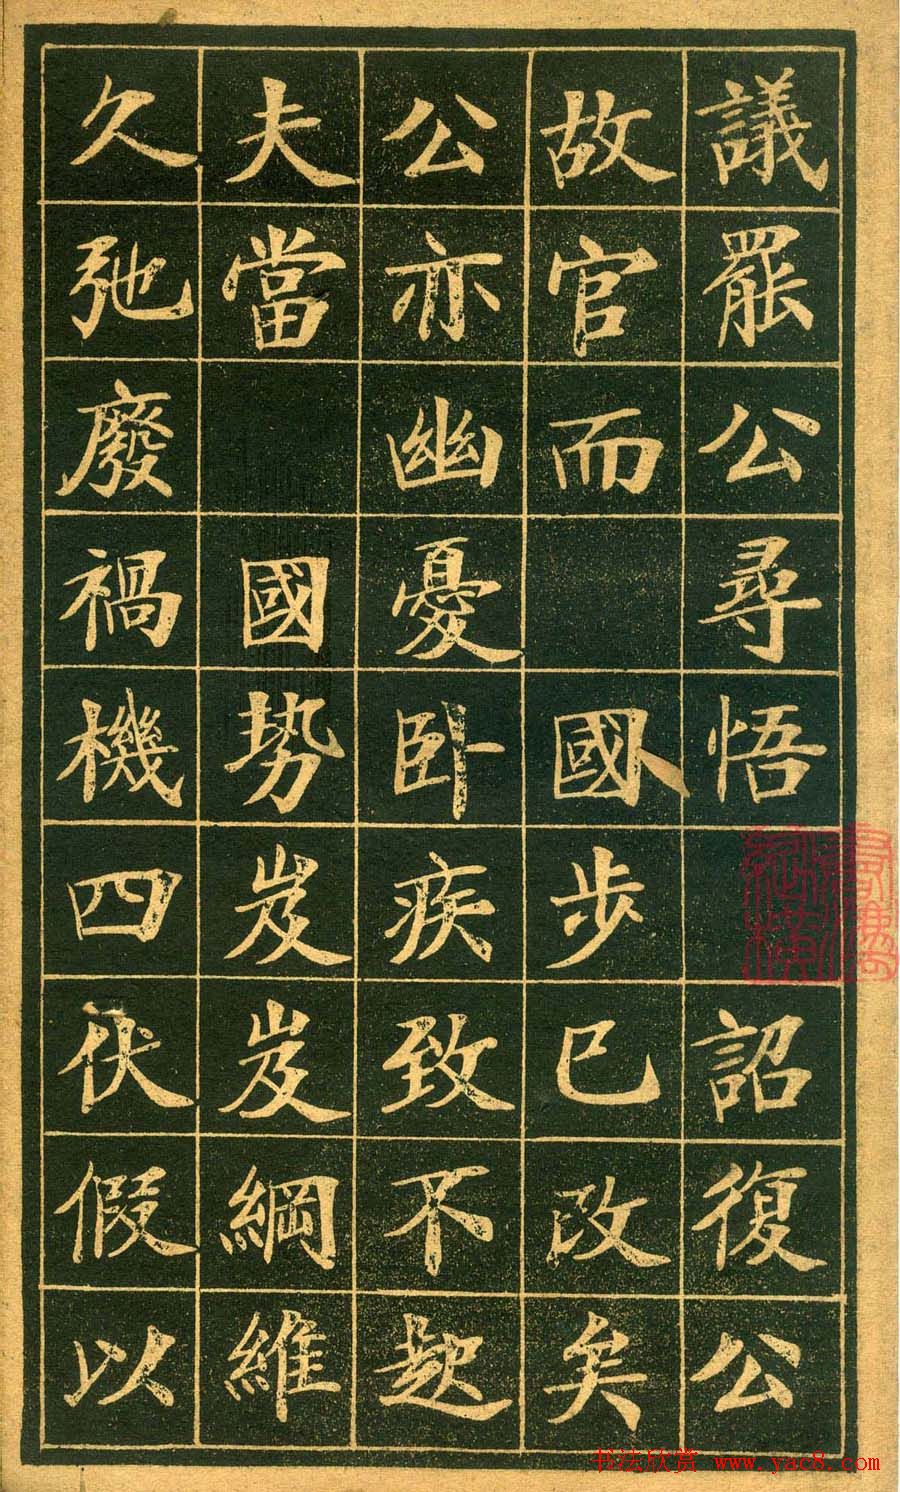 議罷公尋悟 詔復公
故官而 國步已改矣
公亦幽憂卧疾致不起
夫當 國勢岌岌綱維
久弛廢禍機四伏假以
书法欣赏 www.yac8.com